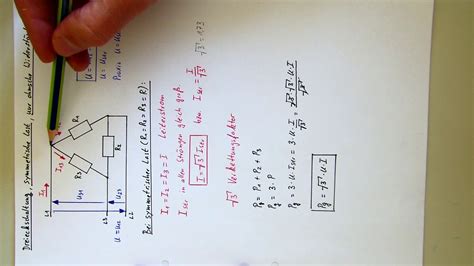 Dreieckschaltung, symmetrische Last, nur ohmsche Widerstände
L1
I1
U31
R1
R3
R2
U23
L3
L2
Bei symmetrischer Last (R1 = R2 = R3 = R):
I1 = I2 = I3 = I Leiterstrom
IStr in allen Strängen gleich groß
I = √3 · IStr bzw. IStr = I/√3
√3 ≈ 1,73
√3 Verkettungsfaktor
Pg = P1 + P2 + P3
Pg = 3 · P
Pg = 3 · U · IStr = 3 · U · I/√3 = √3 · √3 · U · I/√3
Pg = √3 · U · I